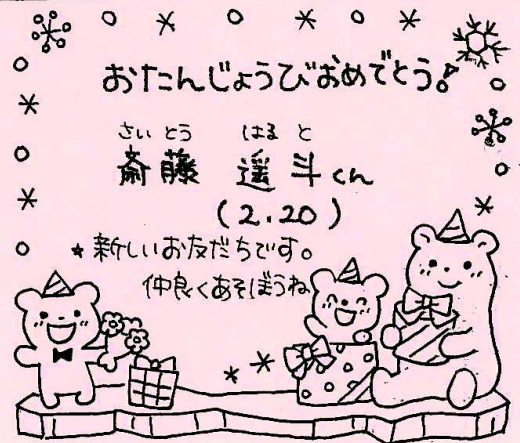 おたんじょうびおめでとう!
さいとう はると
斎藤 遥斗くん
(2.20)
★新しいお友だちです。
仲良くあそぼうね